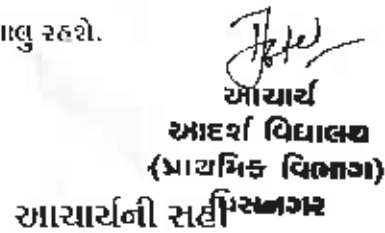 રહેશે.
આચાર્ય
આદર્શ વિદ્યાલય
(પ્રાથમિક વિભાગ)
આચાર્યની સહી